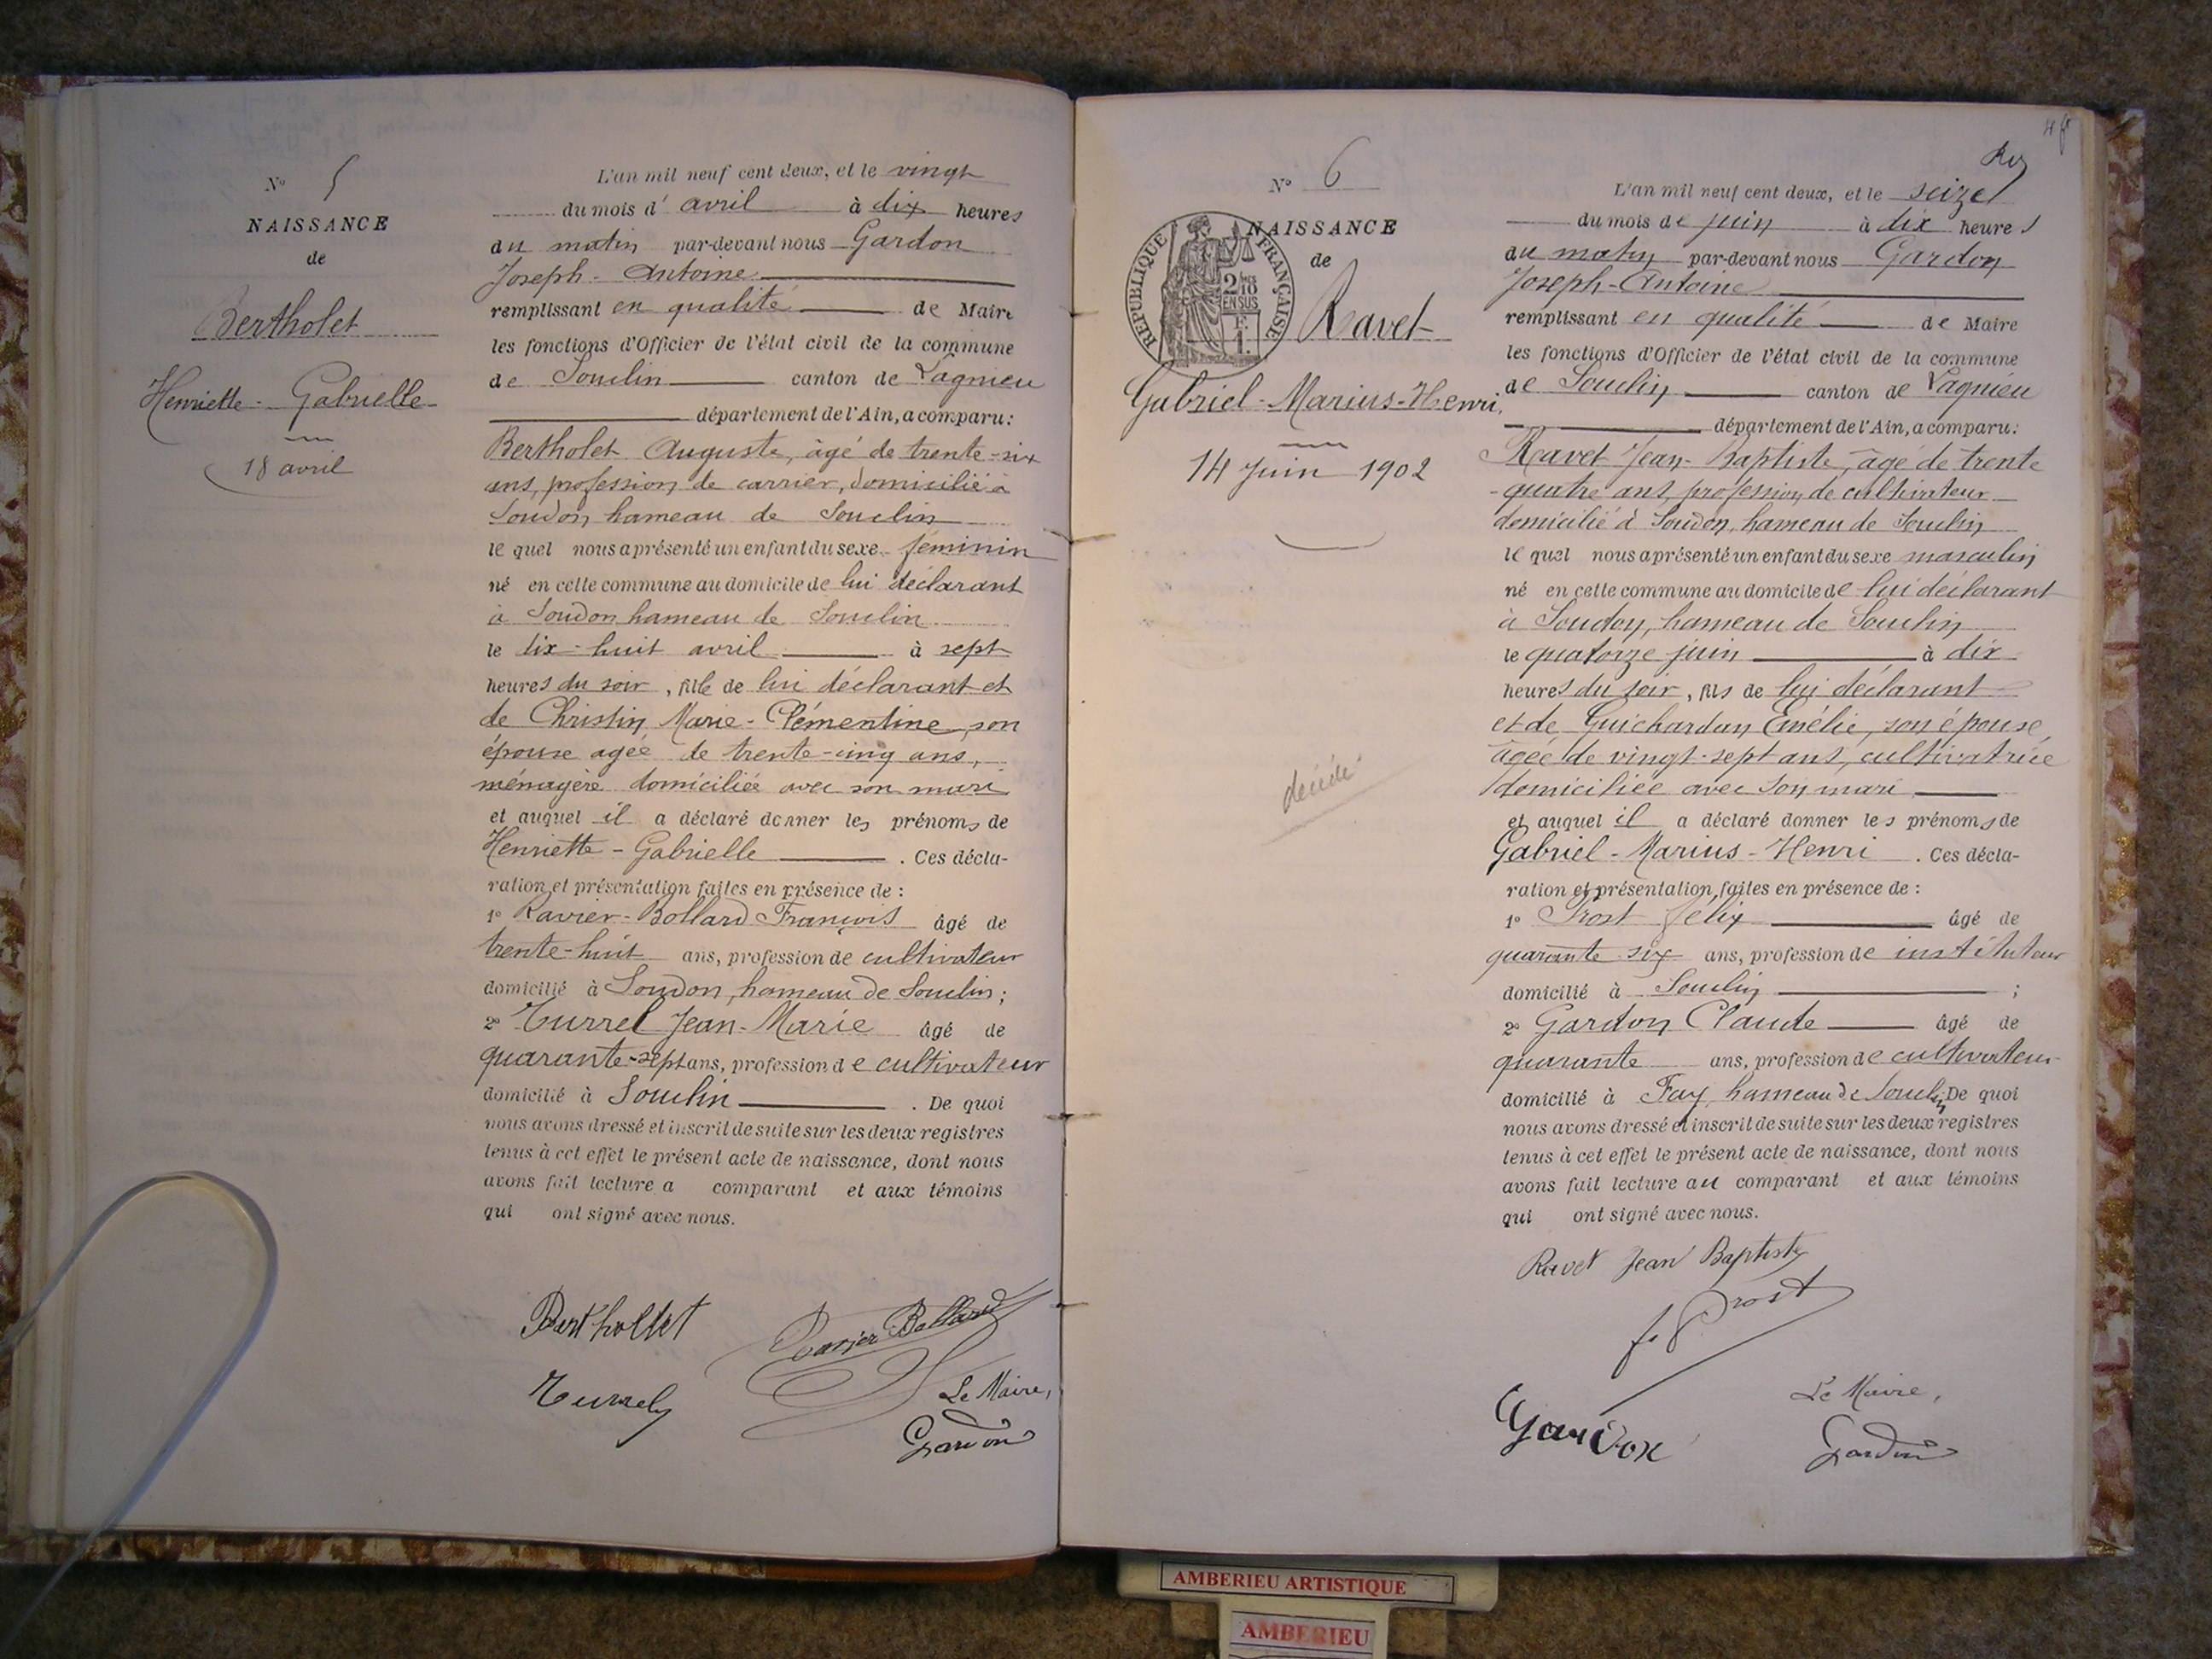 N° 5
NAISSANCE
de
Bertholet
Henriette - Gabrielle
18 avril
L'an mil neuf cent deux, et le vingt
du mois d' avril à dix heures
du matin par-devant nous Gardon
Joseph - Antoine
remplissant en qualité de Maire
les fonctions d'Officier de l'état civil de la commune
de Souclin canton de Lagnieu
département de l'Ain, a comparu:
Bertholet Auguste, âgé de trente-six
ans, profession de carrier, domicilié à
Soudon hameau de Souclin
le quel nous a présenté un enfant du sexe féminin
né en cette commune au domicile de lui déclarant
à Soudon hameau de Souclin
le dix-huit avril à sept
heures du soir, fille de lui déclarant et
de Christin Marie-Clémentine, son
épouse agée de trente-cinq ans,
ménagère domiciliée avec son mari
et auquel il a déclaré donner les prénoms de
Henriette - Gabrielle . Ces décla-
ration et présentation faites en présence de :
1° Ravier-Bollard François âgé de
trente-huit ans, profession de cultivateur
domicilié à Soudon, hameau de Souclin;
2° Turrel Jean-Marie âgé de
quarante-sept ans, profession de cultivateur
domicilié à Souclin . De quoi
nous avons dressé et inscrit de suite sur les deux registres
tenus à cet effet le présent acte de naissance, dont nous
avons fait lecture a comparant et aux témoins
qui ont signé avec nous.
Berthollet Ravier Bollard
Turrel Le Maire,
Gardon
N° 6
NAISSANCE
de
REPUBLIQUE FRANÇAISE
2/10 EN SUS
Ravet
Gabriel-Marius-Henri
14 Juin 1902
décédé
L'an mil neuf cent deux, et le seize
du mois de juin à dix heures
du matin par-devant nous Gardon
Joseph-Antoine
remplissant en qualité de Maire
les fonctions d'Officier de l'état civil de la commune
de Souclin canton de Lagnieu
département de l'Ain, a comparu:
Ravet Jean-Baptiste, âgé de trente
-quatre ans, profession de cultivateur
domicilié à Soudon, hameau de Souclin
le quel nous a présenté un enfant du sexe masculin
né en cette commune au domicile de lui déclarant
à Soudon, hameau de Souclin
le quatorze juin à dix
heures du soir, fils de lui déclarant
et de Guichardan Emélie, son épouse
agée de vingt-sept ans, cultivatrice
domiciliée avec son mari
et auquel il a déclaré donner les prénoms de
Gabriel - Marius - Henri . Ces décla-
ration et présentation faites en présence de :
1° Prost Félix âgé de
quarante six ans, profession de instituteur
domicilié à Souclin ;
2° Gardon Claude âgé de
quarante ans, profession de cultivateur
domicilié à Fay, hameau de Souclin. De quoi
nous avons dressé et inscrit de suite sur les deux registres
tenus à cet effet le présent acte de naissance, dont nous
avons fait lecture au comparant et aux témoins
qui ont signé avec nous.
Ravet Jean Baptiste
f. Prost
Gardon Le Maire,
Gardon
AMBERIEU ARTISTIQUE
AMBERIEU